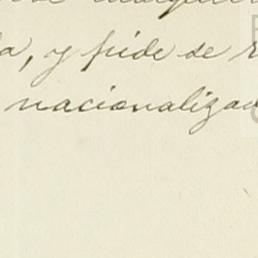 a, y pide se r
nacionalizad